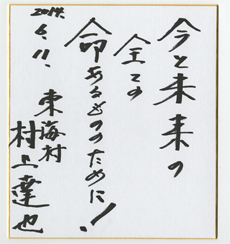 今と未来の
全ての
命あるもののために!
2014.
6.11.
東海村
村上達也